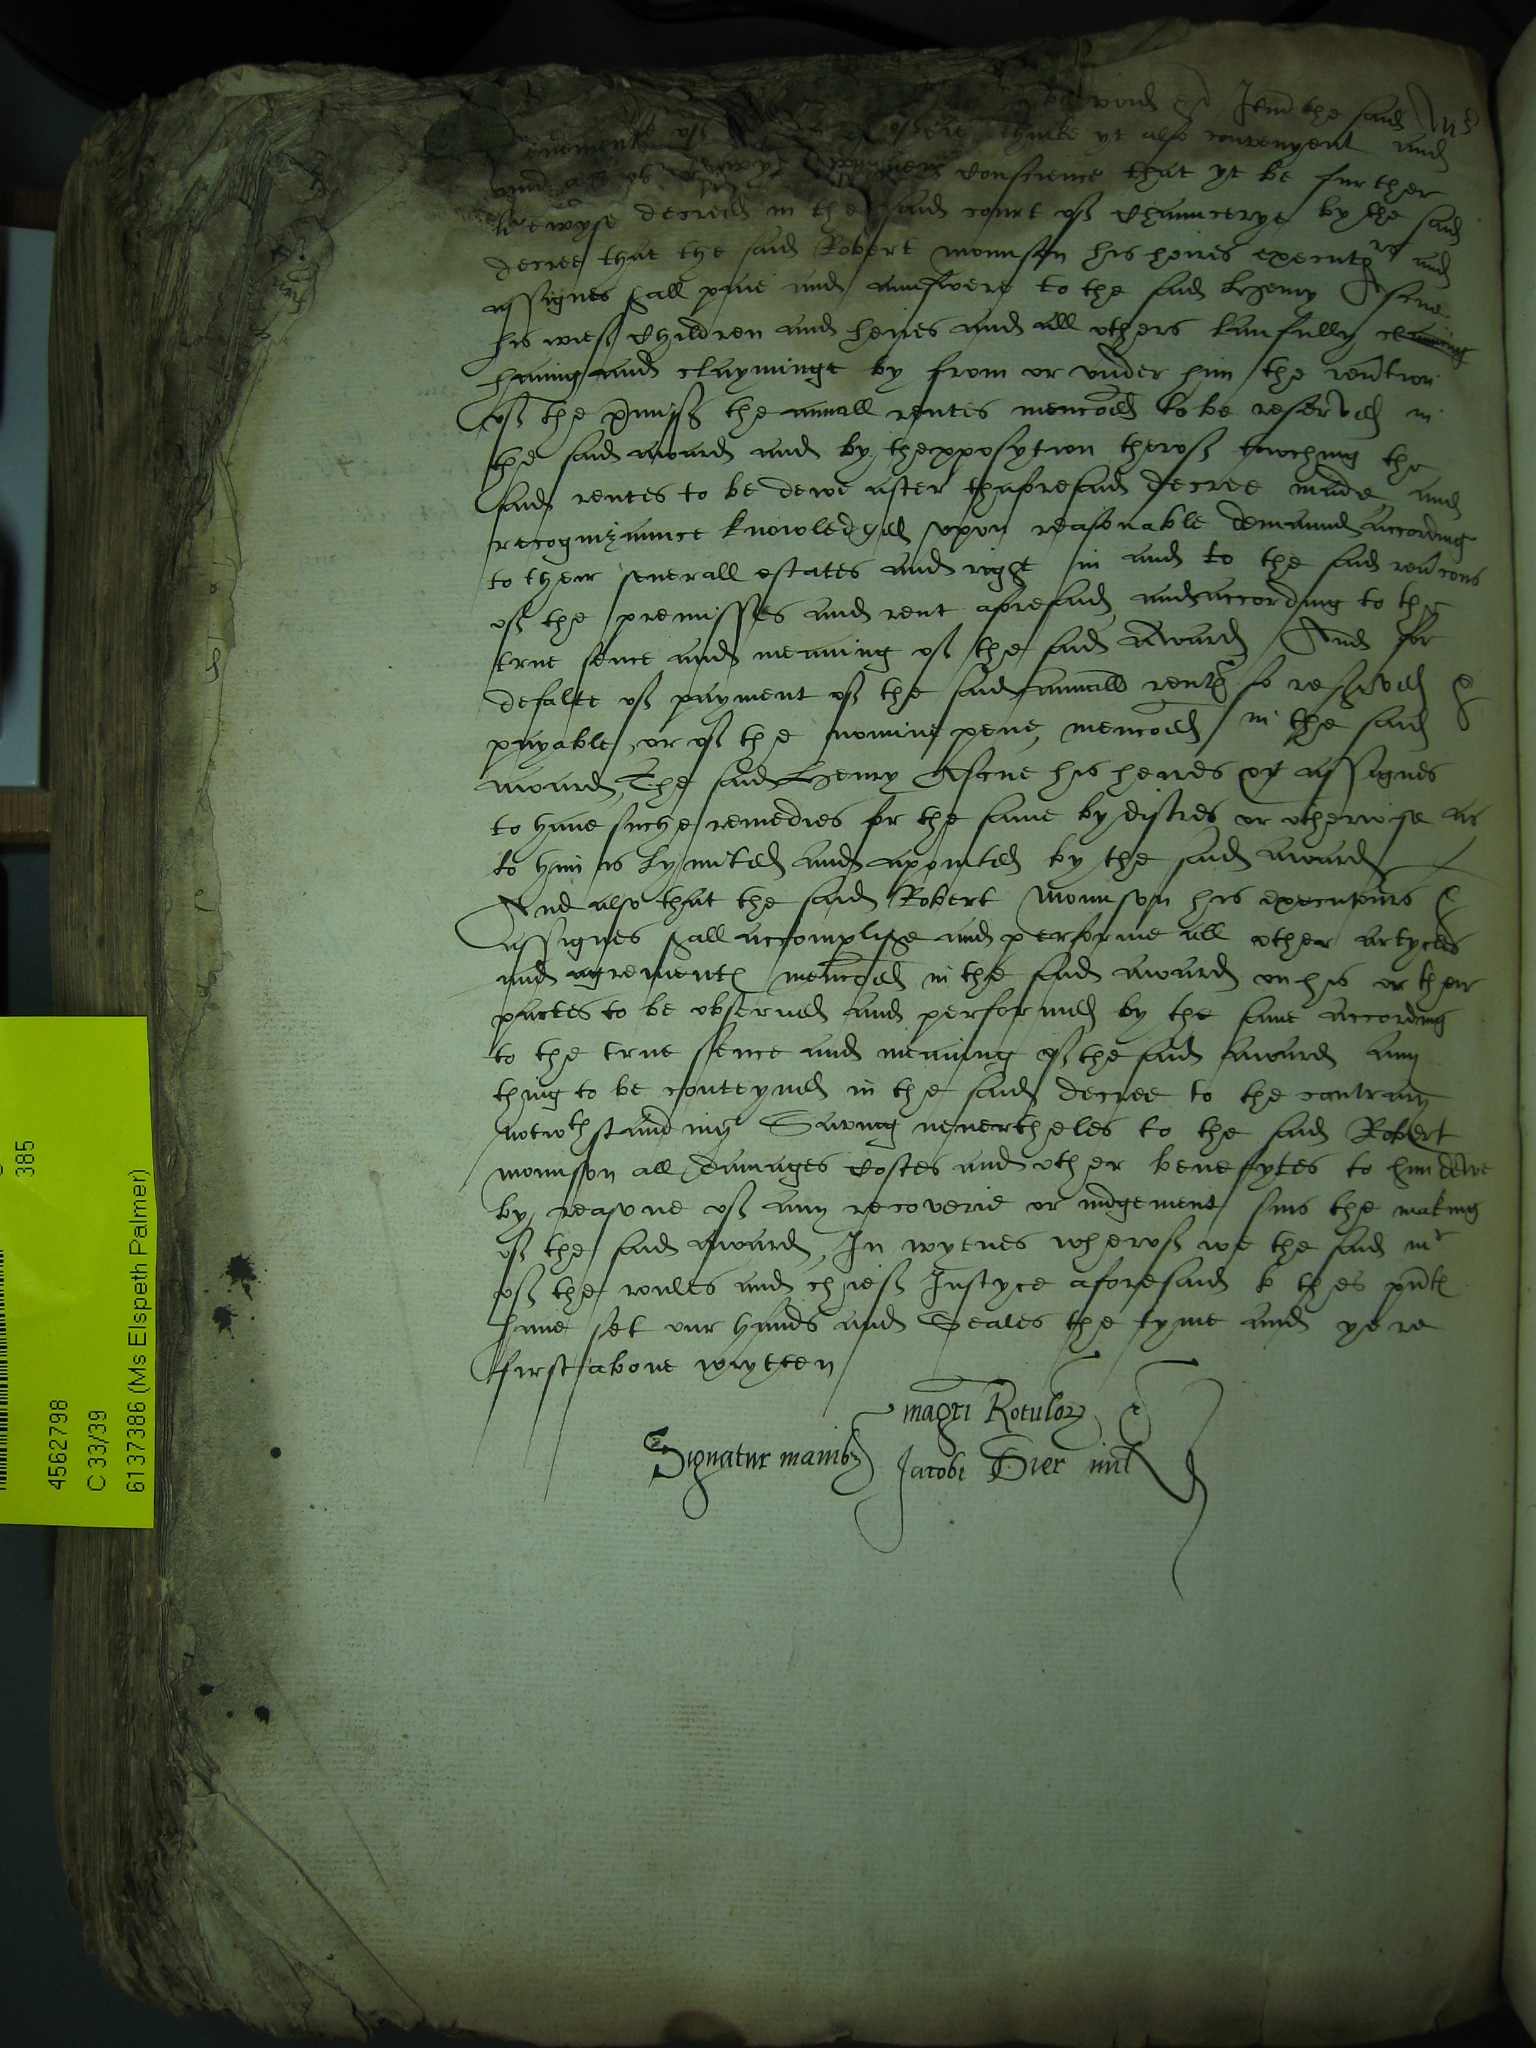 be void &c Item the said Mr
thinke yt also convenyent and
conscience that yt be further
lykewyse decreed in the said court off Chauncerye by the said
decree that the said Robert Mounson his heires executors and
assignes shall paie and aunswere to the said Henry Ascue
his wieff Children and heires and all others laufully claming
having and clayminge by from or vnder him the reverton
off the premiss the annuall rentes menconed to be reserved in
the said award and by thexpposytion theroff towching the
said rentes to be dewe after thaforesaid decree made and
recognizaunce knowledged vpon reasonable demaund according
to their severall estates and right in and to the said revercons
off the premisses and rent aforesaid and according to the
true sence and meaning off the said Award And for
defalte off payment off the said annuall rent so reserved &
payable or off the nomine pene menconed in the said
award The said Henry Ascue his heires or assignes
to haue suche remedies for the same by distres or otherwise as
to him is lymited and apointed by the said award
And also that the said Robert Mounson his executours &
assignes shall accomplishe and performe all other artycles
and agrements menconed in the said award on his or their
partes to be observed and performed by the same according
to the true sence and meaning off the said award any
thing to be conteyned in the said decree to the contrary
notwthstanding Saving nevertheles to the said Robert
Mounson all damages Costes and other benefytes to him dewe
by reasone off any recoverie or iudgement sins the making
off the said award In wytnes wheroff we the said mr
off the roules and chieff Iustyce aforesaid to thes pnts
haue set our hands and Seales the tyme and yere
first above wrytten
magri Rotulor &
Signatur manibz Jacobi Dier milit
385
4562798
C 33/39
6137386 (Ms Elspeth Palmer)